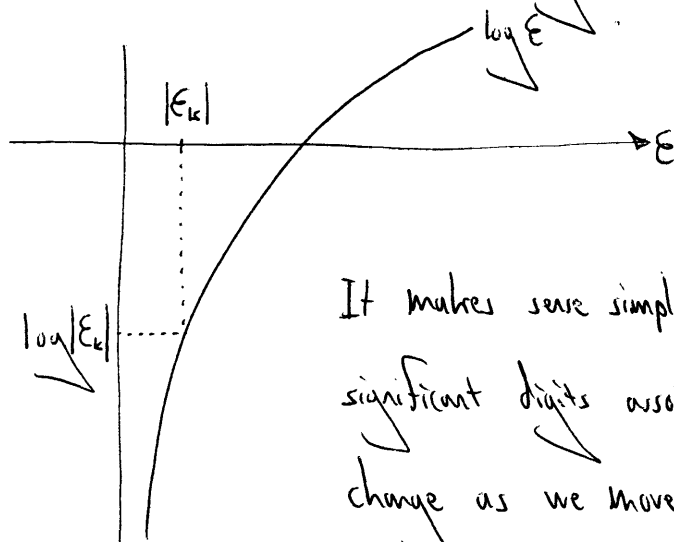 log ε
|ε_k|
ε
log|ε_k|
It makes sense
significant digits
change as we move